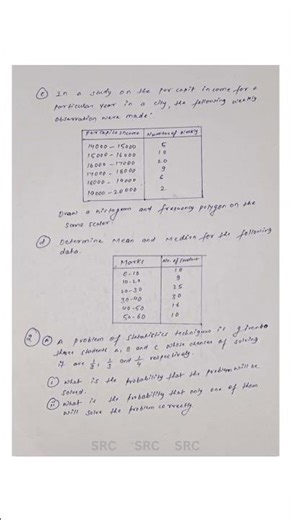 (c) In a study on the per capit income for a
particular year in a city, the following weekly
observation were made:
Per capita income Number of weeks
14000 - 15000 5
15000 - 16000 10
16000 - 17000 20
17000 - 18000 9
18000 - 19000 6
19000 - 20000 2
Draw a histogram and frequency polygon on the
same scale.
(d) Determine mean and median for the following
data.
Marks No. of student
0-10 10
10-20 9
20-30 25
30-40 30
40-50 16
50-60 10
2 (a) A problem of statistics technique is given to
three students A, B and C whose chances of solving
it are 1/2, 1/3 and 1/4 respectively.
(i) What is the probability that the problem will be
solved.
(ii) What is the probability that only one of them
will solve the problem correctly.
SRC SRC SRC